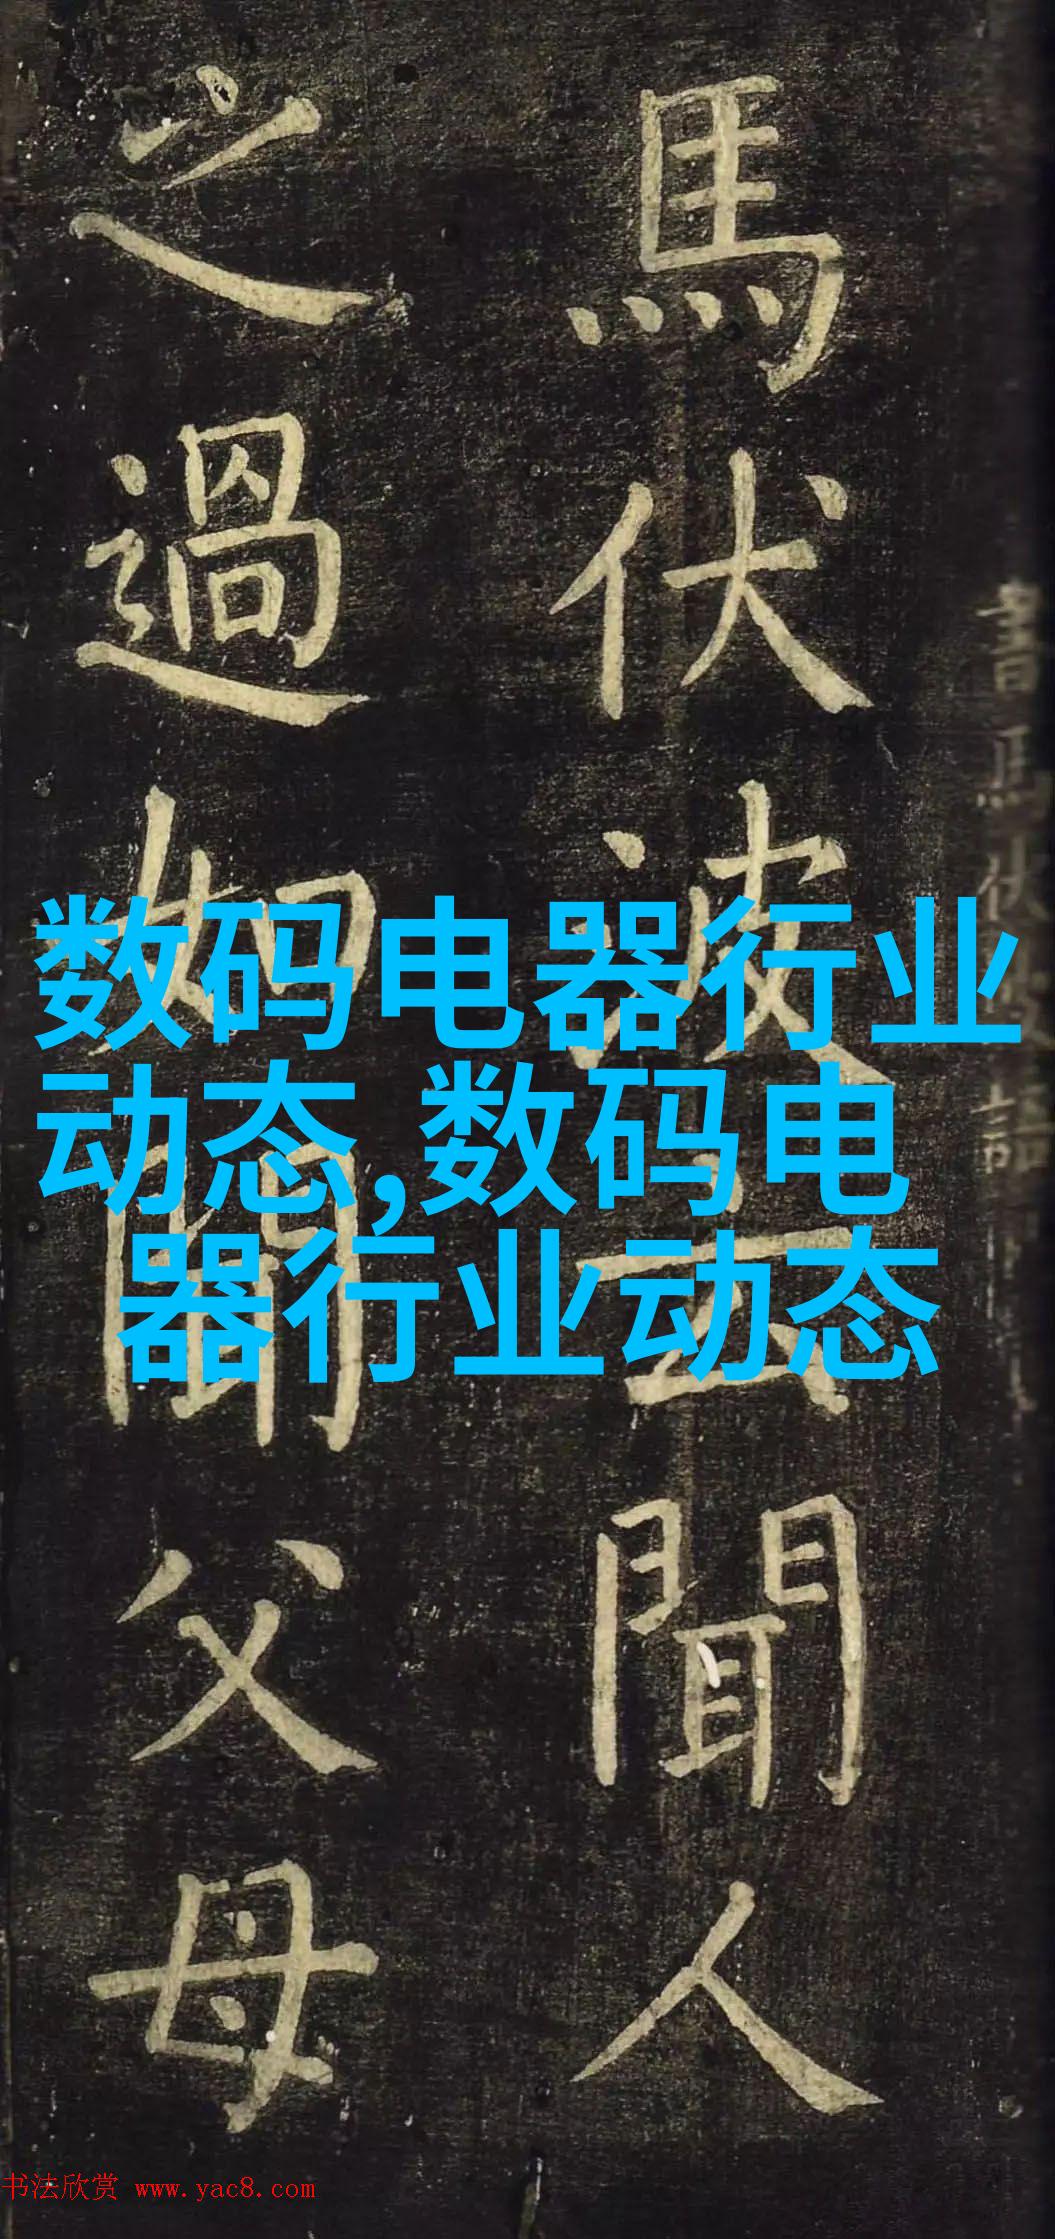 馬伏波云聞人
之過如聞父母
数码电器行业
动态,数码电
器行业动态
书法欣赏 www.yac8.com